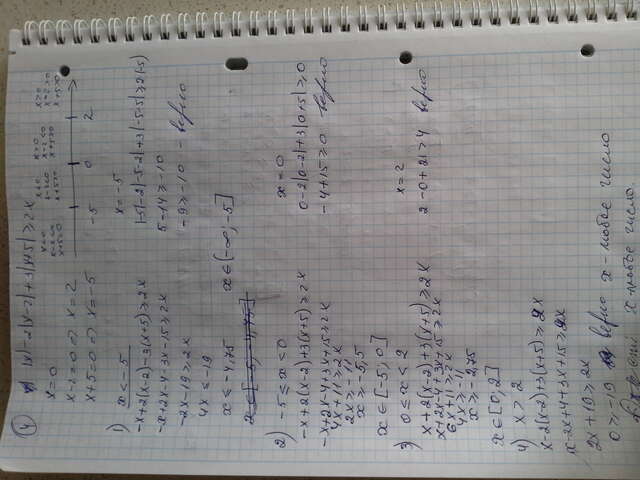 4) |x|-2|x-2|+3|x+5|≥2x
x=0
x-2=0 => x=2
x+5=0 => x=-5
-5 0 2
1) x<-5
-x+2(x-2)-3(x+5)≥2x
-x+2x-4-3x-15≥2x
-2x-19≥2x
4x≤-19
x≤-4,75
x∈(-∞;-5]
x=-5
|-5|-2|-5-2|+3|-5+5|≥2(-5)
5-14≥-10
-9≥-10 - верно
2) -5≤x<0
-x+2(x-2)+3(x+5)≥2x
-x+2x-4+3x+15≥2x
4x+11≥2x
2x≥-11
x≥-5,5
x∈[-5;0]
x=0
0-2|0-2|+3|0+5|≥0
-4+15≥0 верно
3) 0≤x<2
x+2(x-2)+3(x+5)≥2x
x+2x-4+3x+15≥2x
6x+11≥2x
4x≥-11
x≥-2,75
x∈[0;2]
x=2
2-0+21>4 верно
4) x>2
x-2(x-2)+3(x+5)≥2x
x-2x+4+3x+15≥2x
2x+19≥2x
0≥-19 верно x-любое число
x-любое число.